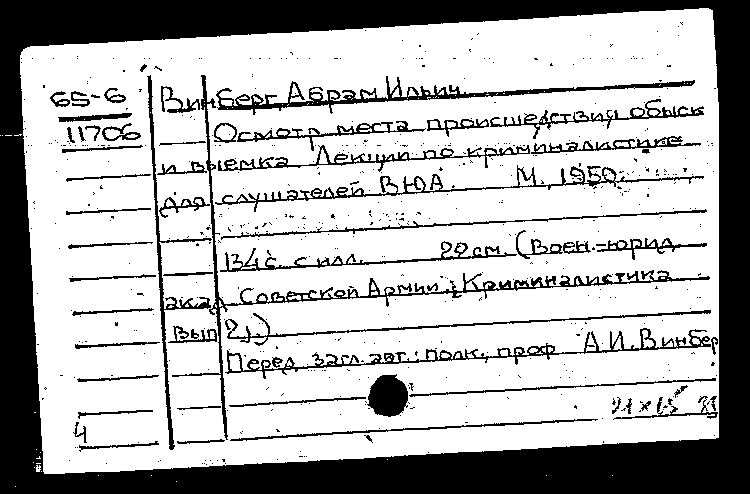 65-6
11706
Винберг, Абрам Ильич.
Осмотр места происшедствия обыск
и выемка Лекции по криминалистике
для слушателей ВЮА. М., 1950.
134 с. с илл. 22 см. (Воен.-юрид.
акад Советской Армии; Криминалистика
Вып 2,.)
Перед загл. авт.: полк., проф А.И. Винбер
4